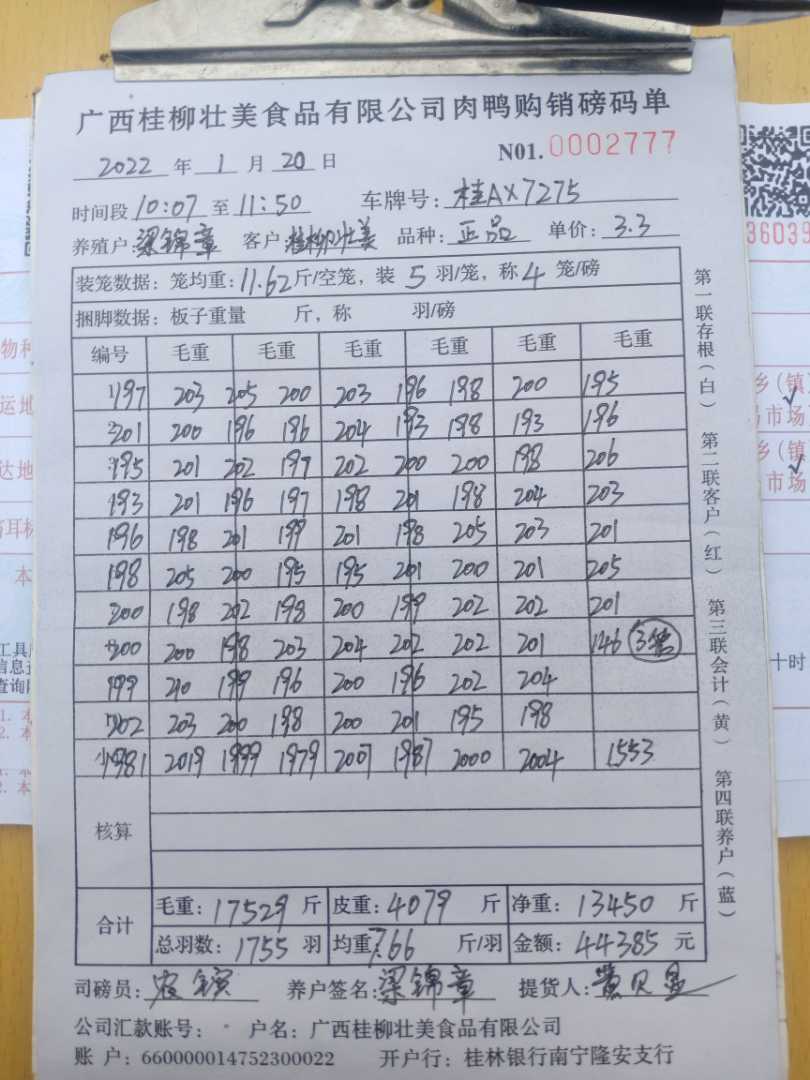 广西桂柳壮美食品有限公司肉鸭购销磅码单
2022 年 1 月 20 日 N01.0002777
时间段 10:07 至 11:50 车牌号: 桂AX7275
养殖户: 梁锦章 客户: 桂柳壮美 品种: 正品 单价: 3.3
装笼数据: 笼均重: 11.62 斤/空笼, 装 5 羽/笼, 称 4 笼/磅
捆脚数据: 板子重量 斤, 称 羽/磅
编号 毛重 毛重 毛重 毛重 毛重 毛重
197 203 205 200 203 196 198 200 195
201 200 196 196 204 193 198 193 196
195 201 202 197 202 200 200 198 206
193 201 196 197 198 201 198 204 203
196 198 201 199 201 198 205 203 201
198 205 200 195 195 201 200 201 205
200 198 202 198 200 199 202 202 201
200 200 198 203 204 202 202 201 146 3笼
199 210 199 196 200 196 202 204
202 203 200 198 200 201 195 198
小1981 2019 1999 1979 2007 1987 2000 2004 1553
核算
合计
毛重: 17529 斤 皮重: 4079 斤 净重: 13450 斤
总羽数: 1755 羽 均重: 7.66 斤/羽 金额: 44385 元
司磅员: 养户签名: 梁锦章 提货人:
公司汇款账号: 户名: 广西桂柳壮美食品有限公司
账 户: 660000014752300022 开户行: 桂林银行南宁隆安支行
第一联存根(白) 第二联客户(红) 第三联会计(黄) 第四联养户(蓝)
36039
物种
运地
达地
乡(镇)
易市场
乡(镇)
易市场
十时